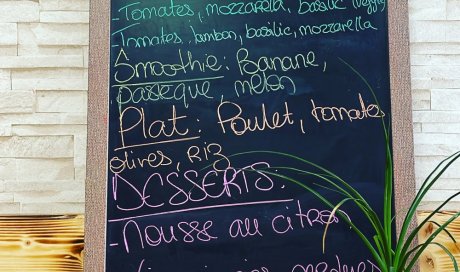 - Tomates, mozzarella, basilic (veggie)
- Tomates, jambon, basilic, mozzarella
Smoothie: Banane,
pasteque, melon
Plat: Poulet, tomates
olives, Riz
DESSERTS:
- Mousse au citron